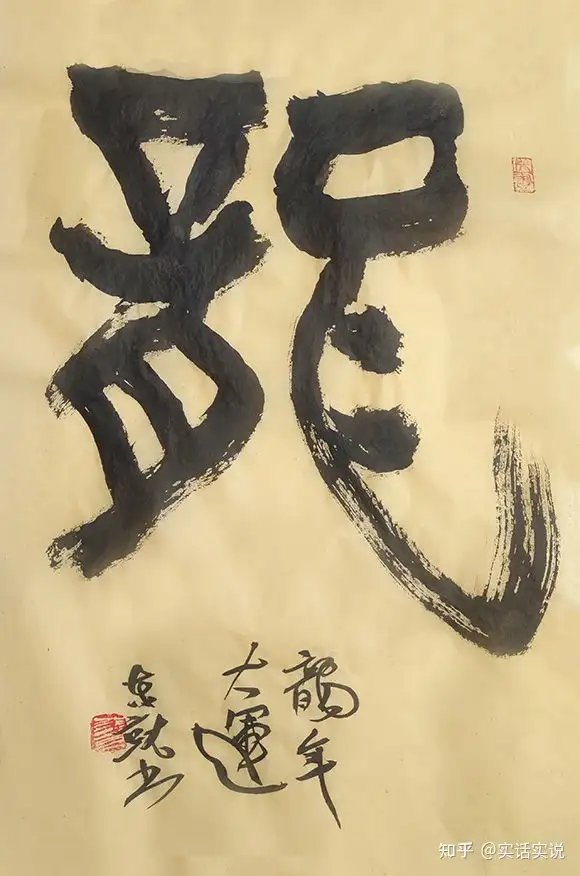 龍
龍年
大運
就书
知乎 @实话实说